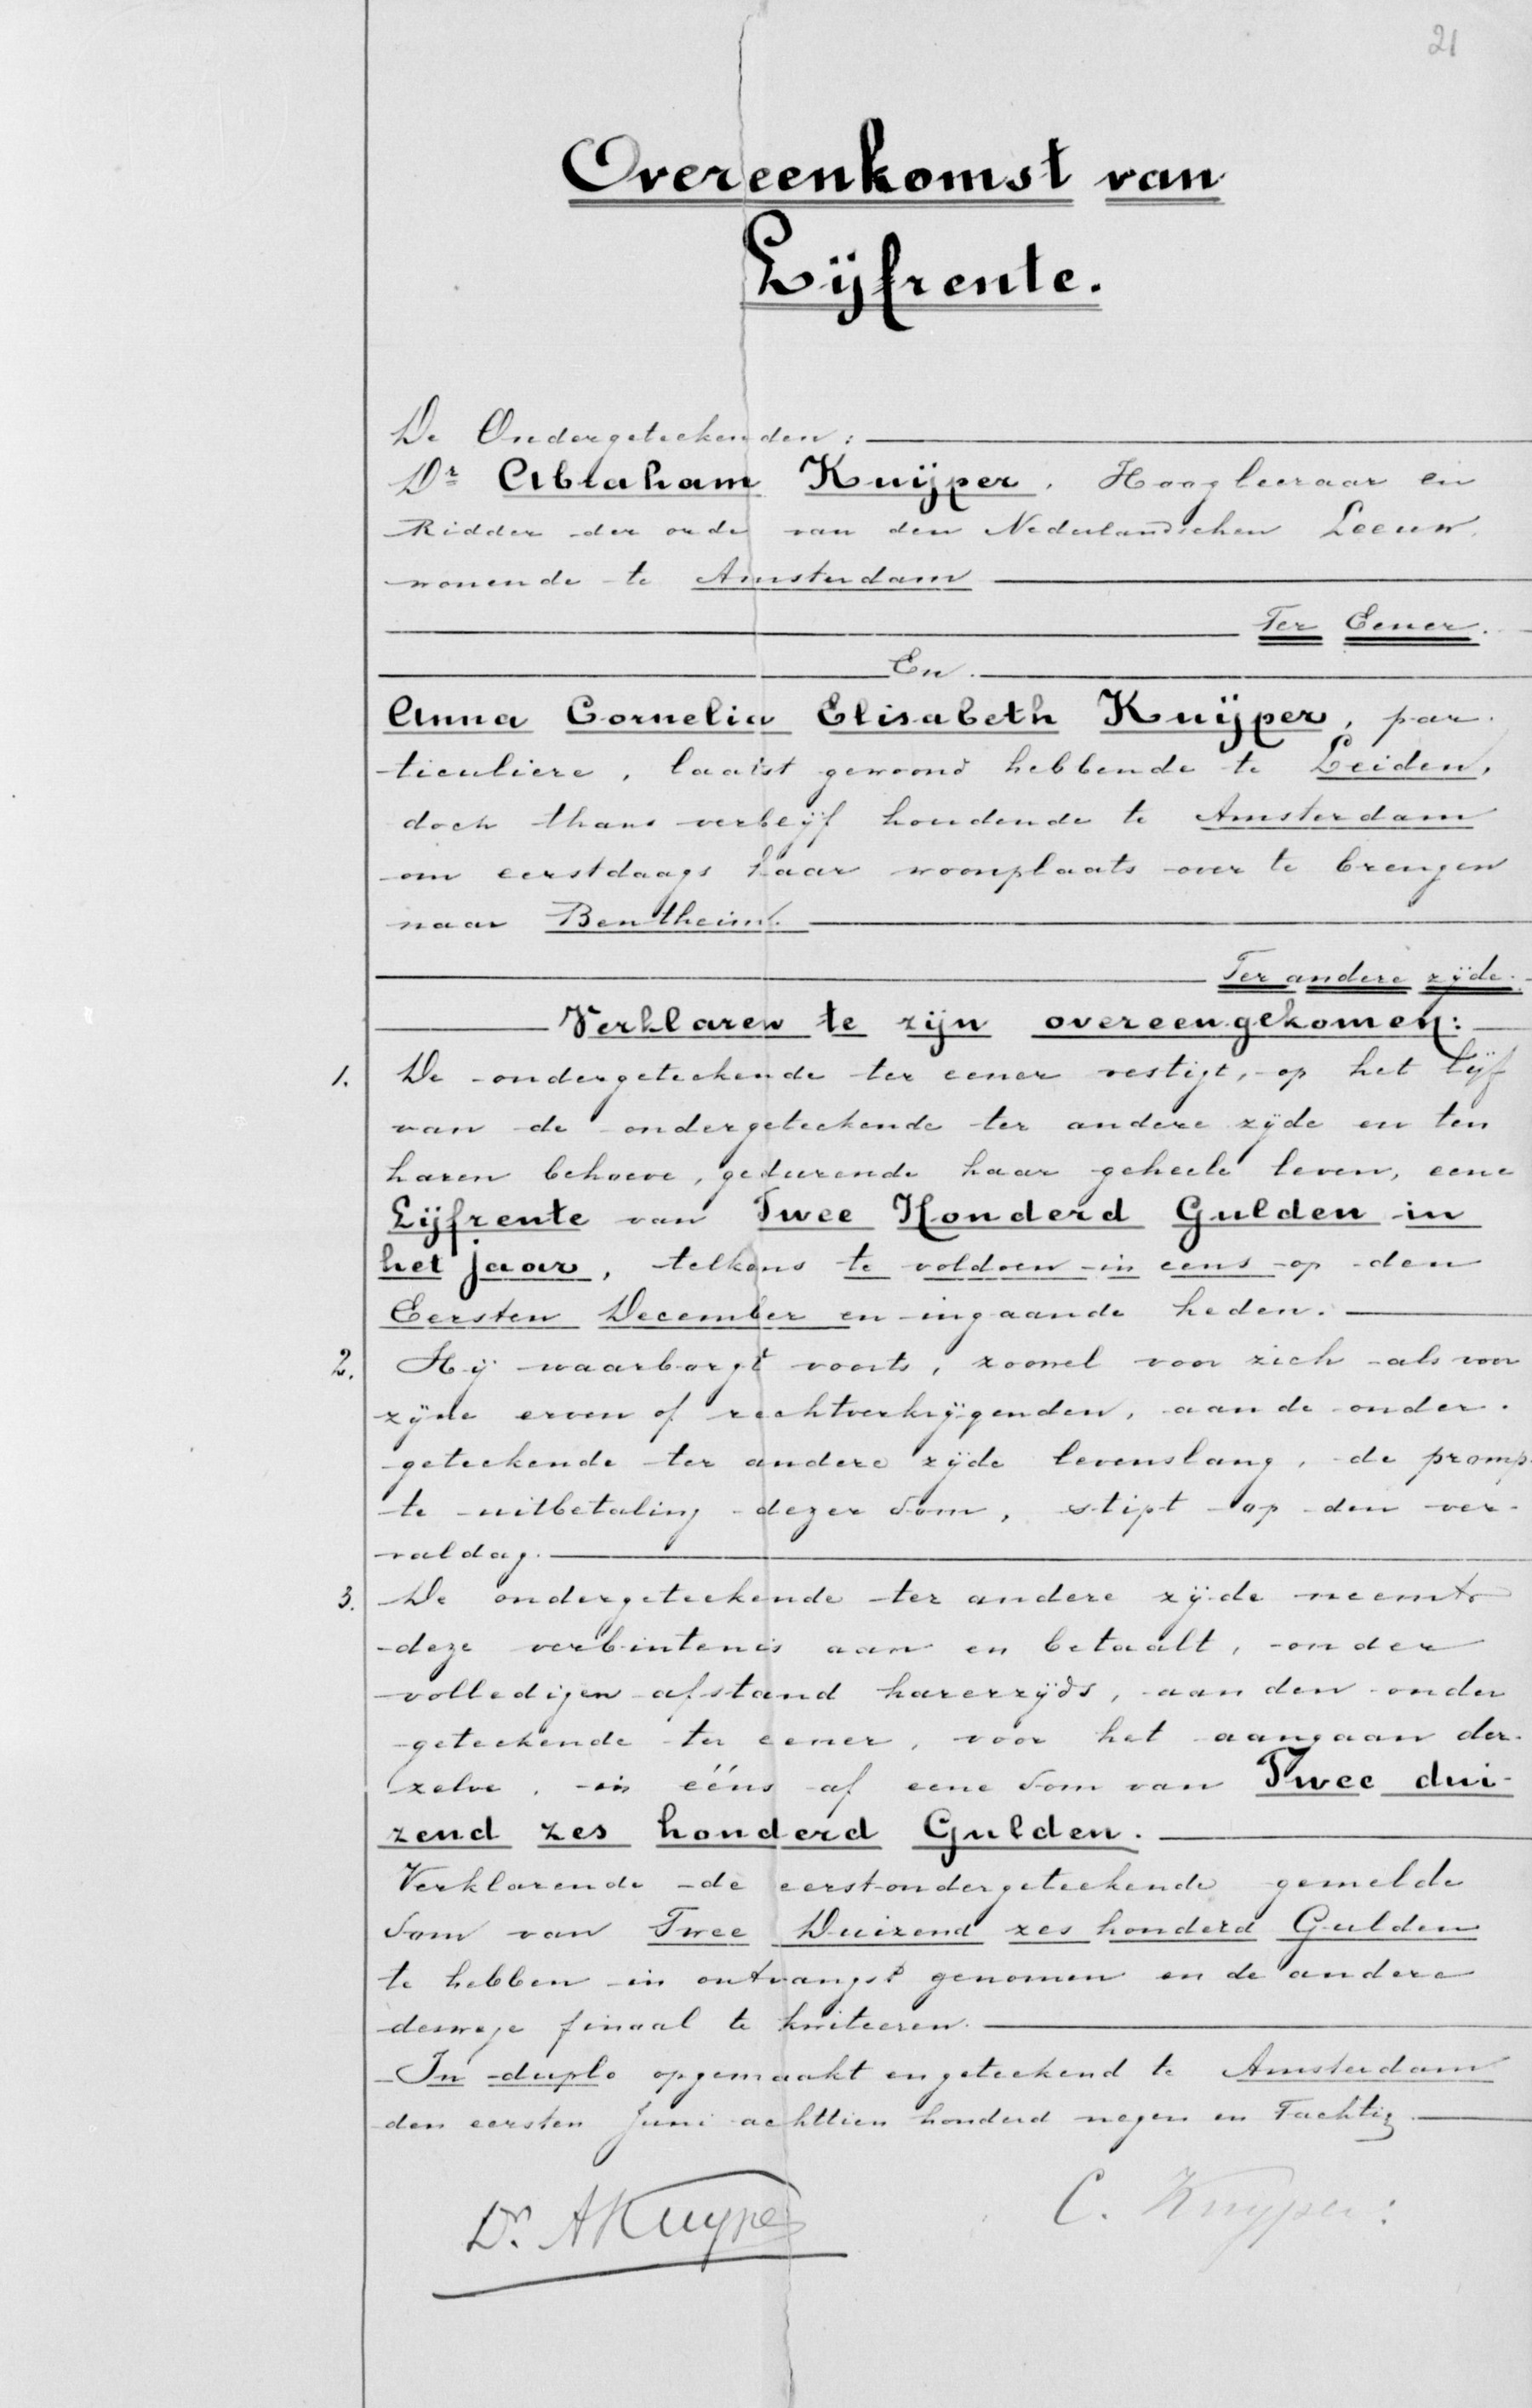 21
Overeenkomst van
Lijfrente.
De Ondergeteekenden:
Dr Abraham Kuijper, Hoogleeraar en
Ridder der orde van den Nederlandschen Leeuw,
wonende te Amsterdam
Ter Eener.
En
Anna Cornelia Elisabeth Kuijper, par-
ticuliere, laatst gewoond hebbende te Leiden,
doch thans verblijf houdende te Amsterdam
om eerstdaags haar woonplaats over te brengen
naar Bentheim.
Ter andere zijde.
Verklaren te zijn overeengekomen:
1. De ondergeteekende ter eener vestigt, op het lijf
van de ondergeteekende ter andere zijde en ten
haren behoeve, gedurende haar geheele leven, eene
Lijfrente van Twee Honderd Gulden in
het jaar, telkens te voldoen in eens op den
Eersten December en ingaande heden.
2. Hij waarborgt voorts, zoowel voor zich als voor
zijne erven of rechtverkrijgenden, aan de onder-
geteekende ter andere zijde levenslang, de promp-
te uitbetaling dezer som, stipt op den ver-
valdag.
3. De ondergeteekende ter andere zijde neemt
deze verbintenis aan en betaalt, onder
volledigen afstand harerzijds, aan den onder
geteekende ter eener, voor het aangaan der-
zelve, in ééns af eene som van Twee dui-
zend zes honderd Gulden.
Verklarende de eerstondergeteekende gemelde
som van Twee Duizend zes honderd Gulden
te hebben in ontvangst genomen en de andere
deswege finaal te kwiteeren.
In duplo opgemaakt en geteekend te Amsterdam
den eersten Juni achttien honderd negen en Tachtig
Dr. A Kuyper
C. Kuyper.